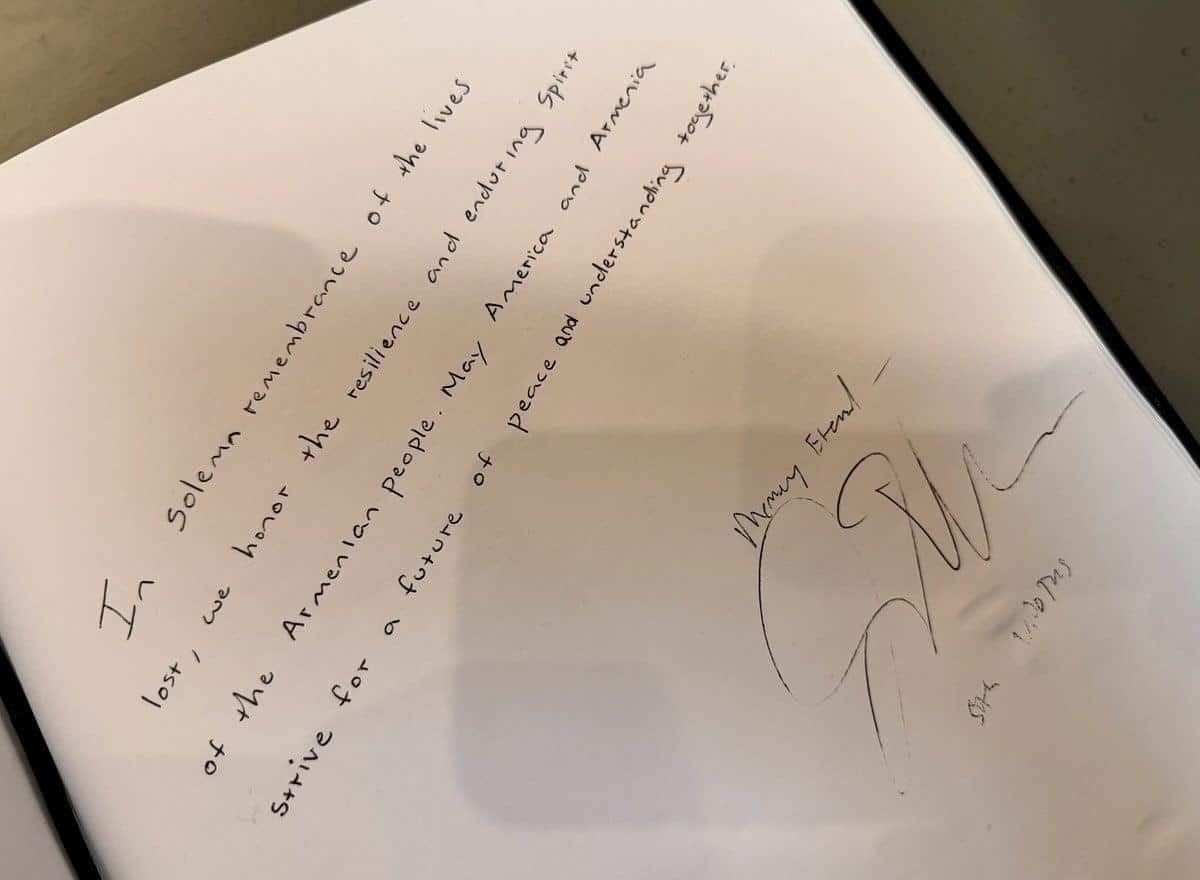 In Solemn remembrance of the lives
lost, we honor the resilience and enduring Spirit
of the Armenian people. May America and Armenia
Strive for a future of peace and understanding together.